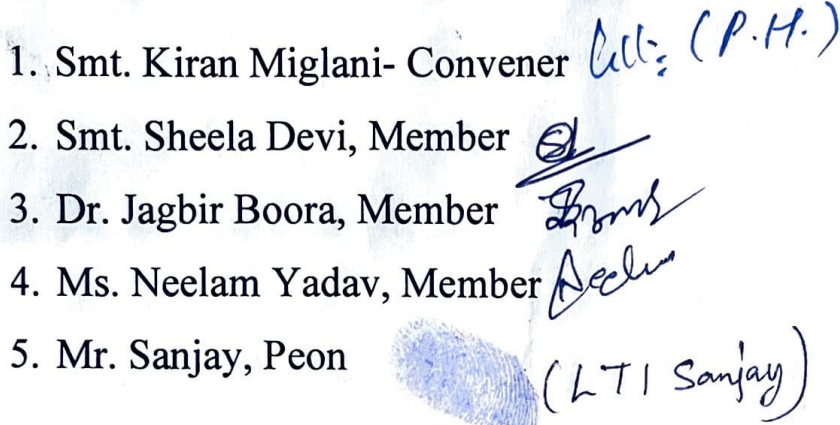 1. Smt. Kiran Miglani- Convener (P.H.)
2. Smt. Sheela Devi, Member
3. Dr. Jagbir Boora, Member
4. Ms. Neelam Yadav, Member Neelam
5. Mr. Sanjay, Peon (LTI Sanjay)